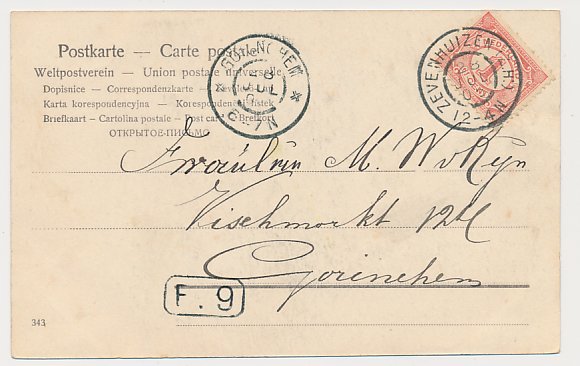 Postkarte — Carte postale
Weltpostverein — Union postale universelle
Dopisnice — Correspondenzkarte
Karta korespondencyjna — Korespondenční lístek
Briefkaart — Cartolina postale — Post card — Brefkort
ОТКРЫТОЕ-ПИСЬМО
GORINCHEM
ZEVENHUIZEN (Z.H)
12-4N
Fraülein M. W. v Ryn
Vischmarkt 124
Gorinchem
F. 9
343